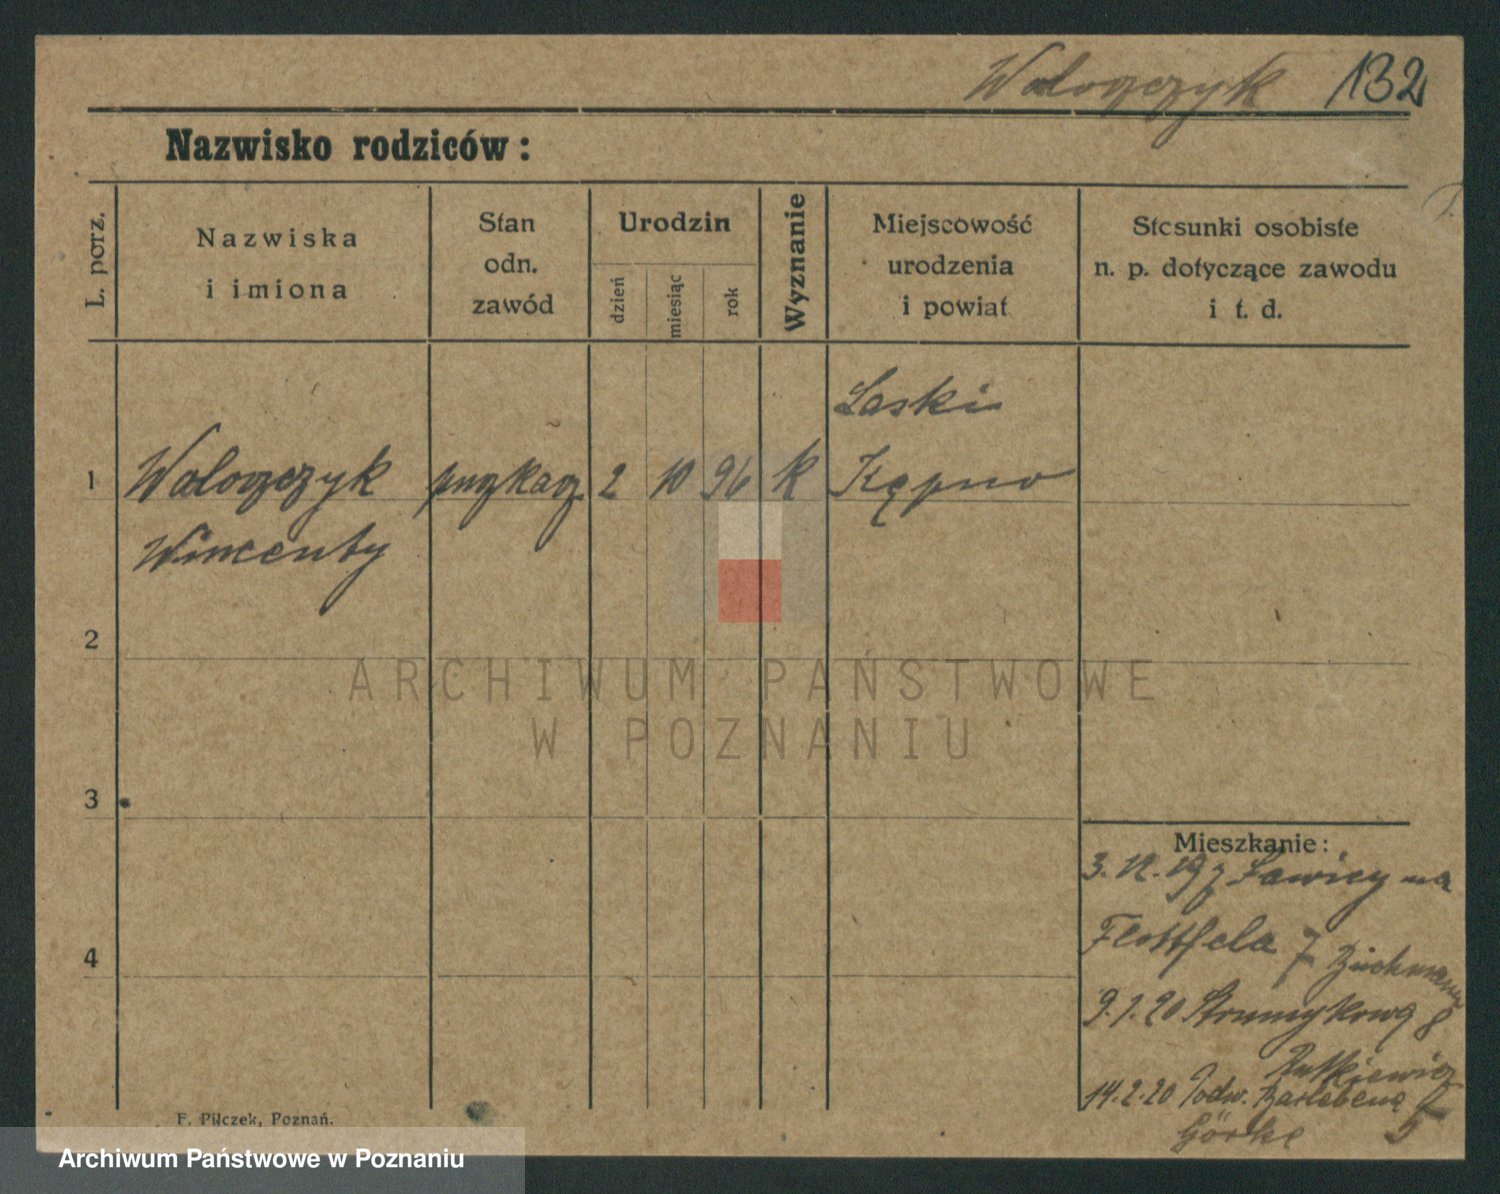 Waloszczyk 132
Nazwisko rodziców:
L. porz.
Nazwiska
i imiona
Stan
odn.
zawód
Urodzin
dzień
miesiąc
rok
Wyznanie
Miejscowość
urodzenia
i powiat
Stosunki osobiste
n. p. dotyczące zawodu
i t. d.
Laski
1 2 10 96 k Kępno
Wincenty
2
ARCHIWUM PAŃSTWOWE
W POZNANIU
3
Mieszkanie:
3. 12. 19 z Ławicy na
4
9. 1. 20 Strumykowa 8
Rutkiewicz
14. 2. 20 Podw. 5
Görke
F. Pilczek, Poznań.
Archiwum Państwowe w Poznaniu